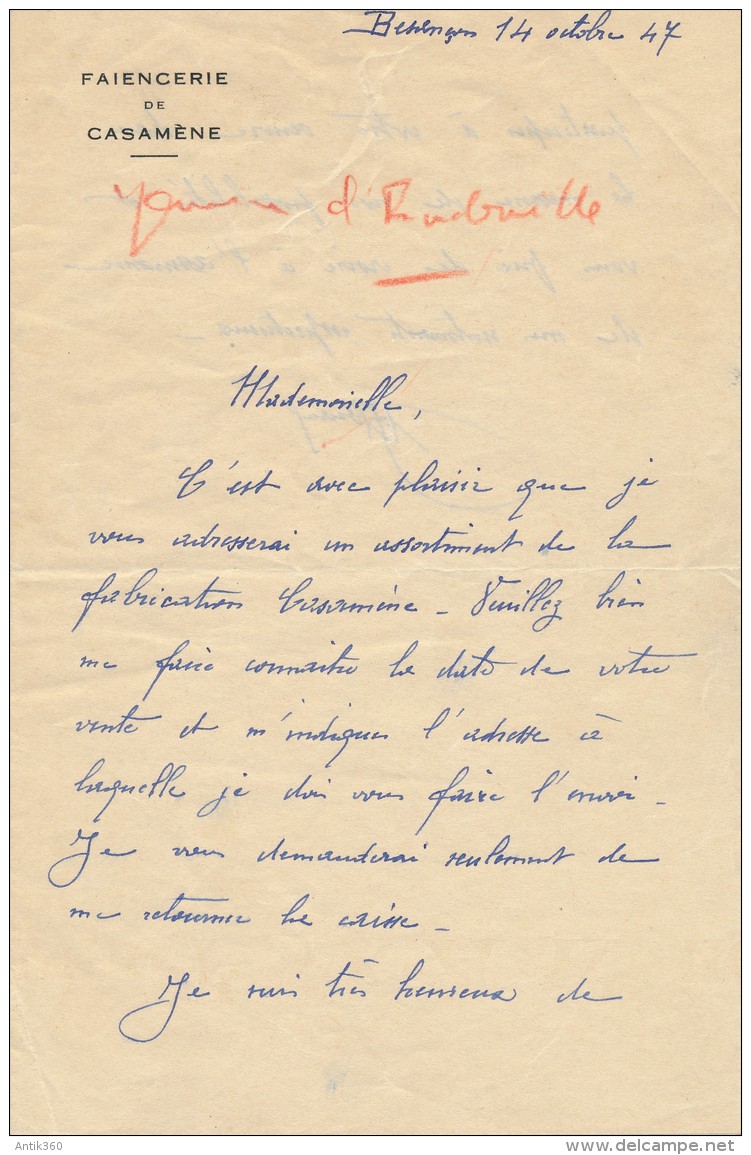 Besançon 14 octobre 47
FAIENCERIE
DE
CASAMÈNE
d'
Mademoiselle,
C'est avec plaisir que je
vous adresserai un assortiment de la
fabrication Casamène - Veuillez bien
me faire connaître la date de votre
vente et m'indiquer l'adresse à
laquelle je dois vous faire l'envoi -
Je vous demanderai seulement de
me retourner la caisse -
Je suis très heureux de
Antik360
delcampe.net